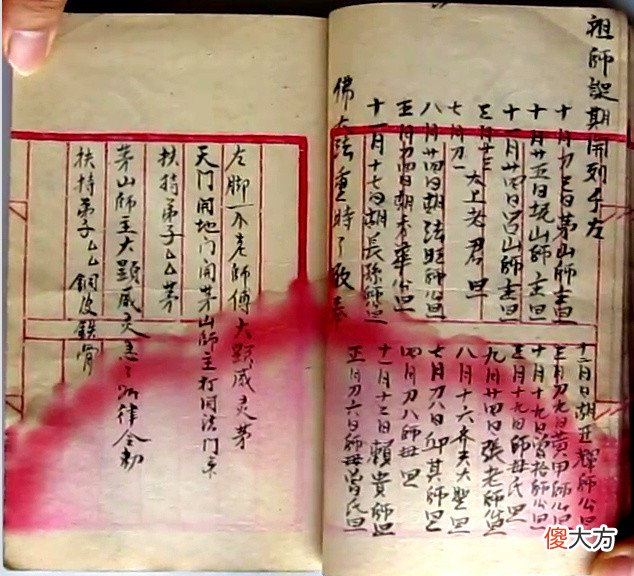 祖師誕期開列于左
十月初三日茅山師主旦
十月廿五日 山師主旦
十一月廿四日呂山師主旦
三月廿三
太上老君旦
七月初一
八月廿四日胡法旺師公旦
五月初四日胡秀華公旦
十一月十七日胡長孫師旦
佛大法重時了收
十二月 日胡亚輝師公旦
三月初九日黃甲師公旦
十月十九日曾 師公旦
三月十九日師母氏旦
九月廿四日張老師旦
八月十六齊天大聖旦
七月初八日邱其師旦
四月初八師母旦
十一月十三日賴貴師旦
正月初六日師母曾氏旦
左脚一不老師傅大顯威灵茅
天门開地门開茅山師主打同法门
扶持弟子厶厶茅
茅山師主大顯威灵急了如律令勅
扶持弟子厶厶銅皮鉄骨
傻大方